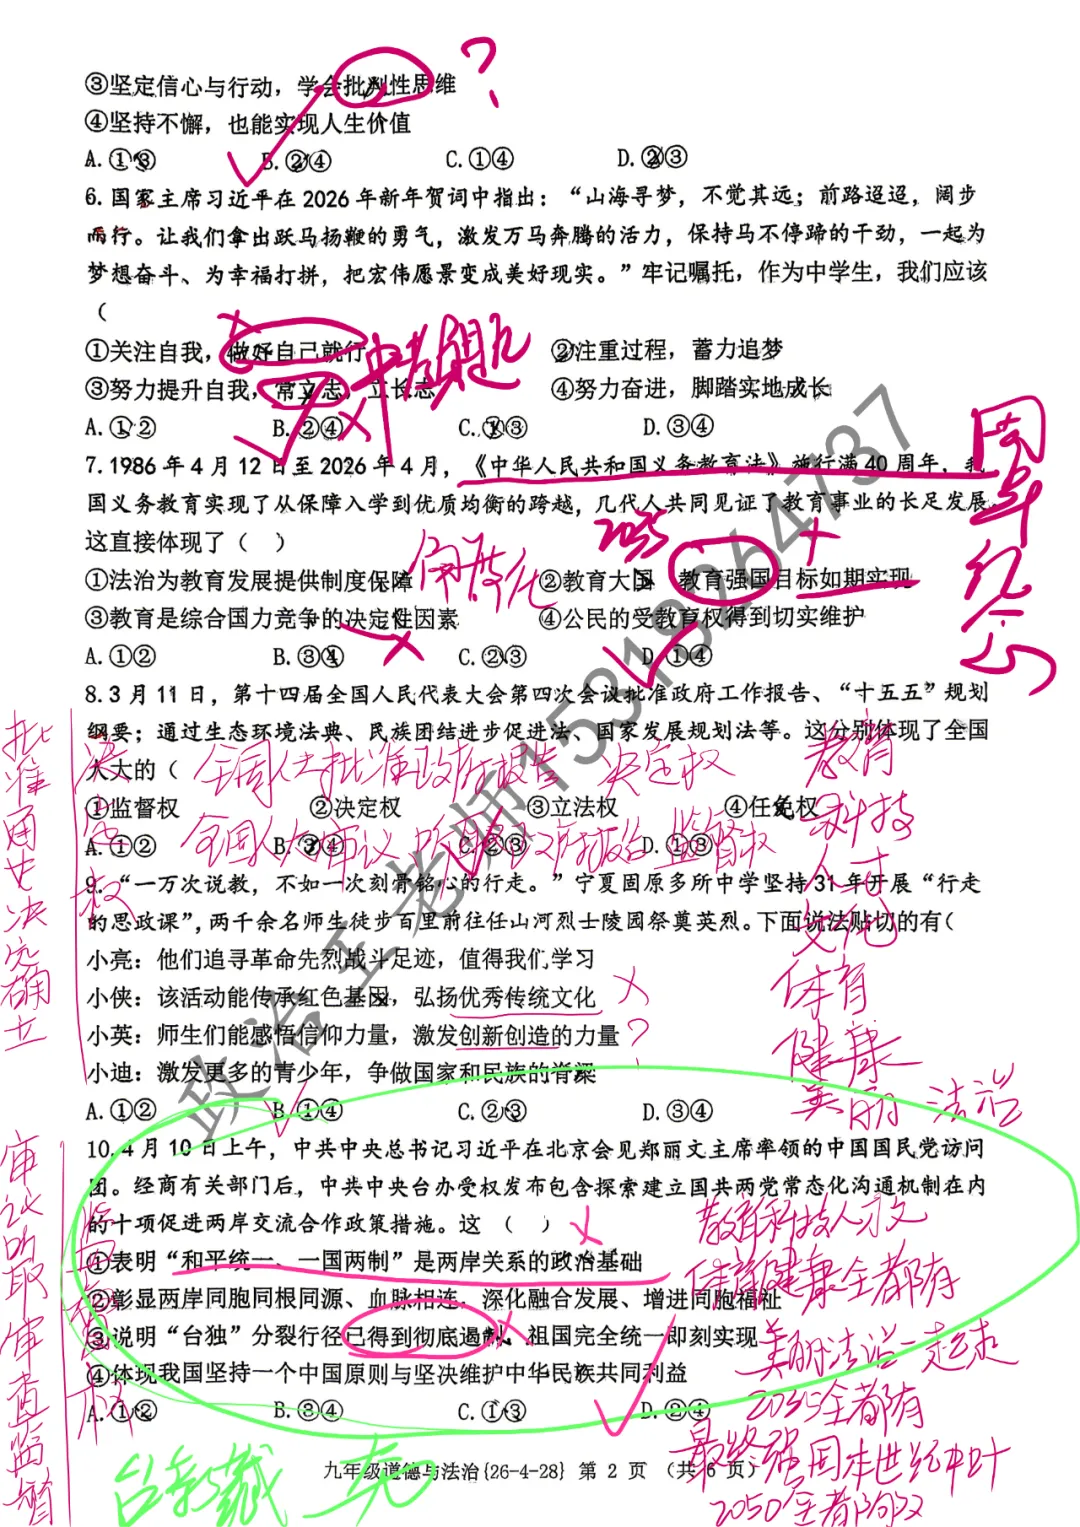 ③坚定信心与行动，学会批判性思维
？
④坚持不懈，也能实现人生价值
A.①③ B.②④ C.①④ D.②③
6.国家主席习近平在2026年新年贺词中指出：“山海寻梦，不觉其远；前路迢迢，阔步
而行。让我们拿出跃马扬鞭的勇气，激发万马奔腾的活力，保持马不停蹄的干劲，一起为
梦想奋斗、为幸福打拼，把宏伟愿景变成美好现实。”牢记嘱托，作为中学生，我们应该
（
①关注自我，做好自己就行 ②注重过程，蓄力追梦
③努力提升自我，常立志，立长志 ④努力奋进，脚踏实地成长
中考真题
A.①② B.②④ C.①③ D.③④
7.1986年4月12日至2026年4月，《中华人民共和国义务教育法》施行满40周年，我
国义务教育实现了从保障入学到优质均衡的跨越，几代人共同见证了教育事业的长足发展。
这直接体现了（ ）
周年纪念
2035
①法治为教育发展提供制度保障 ②教育大国 教育强国目标如期实现
③教育是综合国力竞争的决定性因素 ④公民的受教育权得到切实维护
A.①② B.③④ C.②③ D.①④
8.3月11日，第十四届全国人民代表大会第四次会议批准政府工作报告、“十五五”规划
纲要；通过生态环境法典、民族团结进步促进法、国家发展规划法等。这分别体现了全国
人大的（
全国人大批准政府报告 决定权
①监督权 ②决定权 ③立法权 ④任免权
全国人大审议 政府报告 监督权
A.①② B.③④ C.②③ D.①③
批准通过决定确立
决定权
9.“一万次说教，不如一次刻骨铭心的行走。”宁夏固原多所中学坚持31年开展“行走
的思政课”，两千余名师生徒步百里前往任山河烈士陵园祭奠英烈。下面说法贴切的有（
小亮：他们追寻革命先烈战斗足迹，值得我们学习
小侠：该活动能传承红色基因，弘扬优秀传统文化
小英：师生们能感悟信仰力量，激发创新创造的力量
？
小迪：激发更多的青少年，争做国家和民族的脊梁
A.①② B.①④ C.②③ D.③④
教育
科技
人才
文化
体育
健康
美丽 法治
10.4月10日上午，中共中央总书记习近平在北京会见郑丽文主席率领的中国国民党访问
团。经商有关部门后，中共中央台办受权发布包含探索建立国共两党常态化沟通机制在内
的十项促进两岸交流合作政策措施。这（ ）
①表明“和平统一、一国两制”是两岸关系的政治基础
②彰显两岸同胞同根同源、血脉相连，深化融合发展、增进同胞福祉
③说明“台独”分裂行径已得到彻底遏制、祖国完全统一即刻实现
④体现我国坚持一个中国原则与坚决维护中华民族共同利益
A.①② B.③④ C.①③ D.②④
审议听取审查监督
监督权
教育科技人才文
体育健康全都有
美丽法治一起来
2035全都有
最终强国本世纪中叶
2050全都
台 藏
九年级道德与法治{26-4-28} 第 2 页 （共 6 页）
政治王老师15318264737